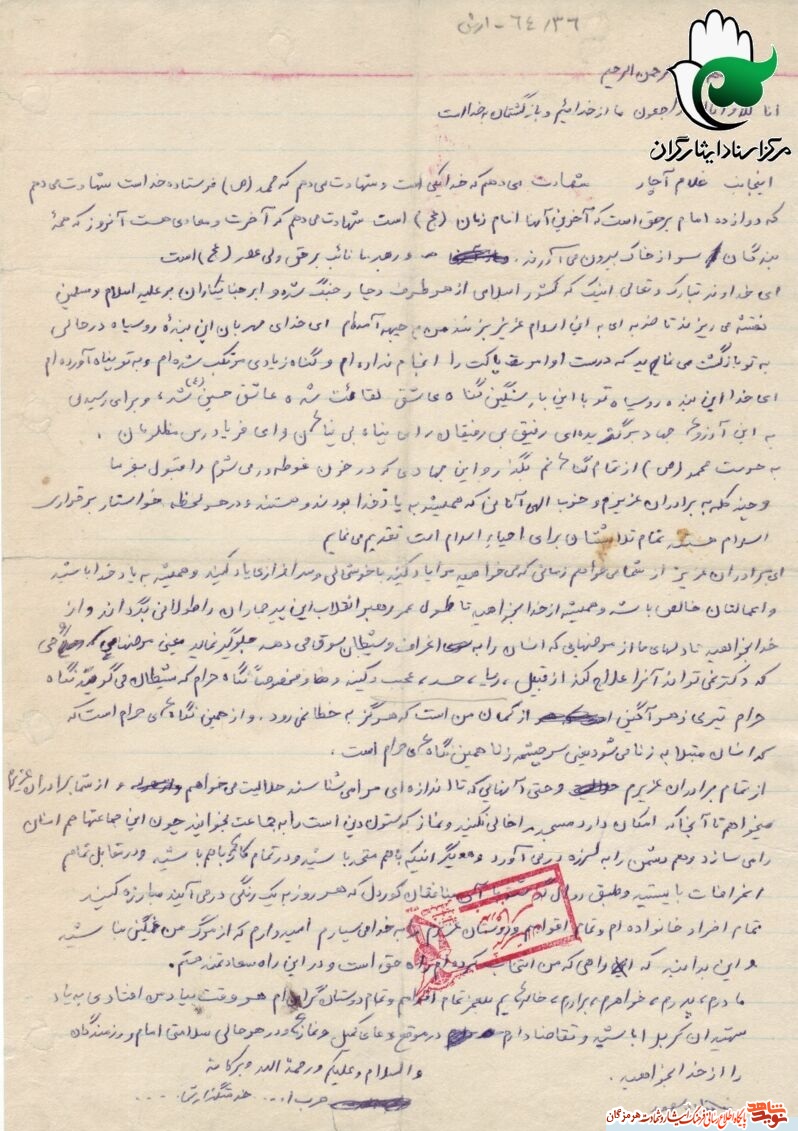 ۶۴/۳۶ - ارتش
الرحمن الرحیم
انا لله و انا الیه راجعون ما از خدائیم و بازگشتمان به خداست
مرکز اسناد ایثارگران
اینجانب غلام آچار شهادت می دهم که خدا یکی است و شهادت می دهم که محمد (ص) فرستاده خداست شهادت می دهم
که دوازده امام برحق است که آخرین آنها امام زمان (عج) است شهادت می دهم که آخرت و معادی هست آنروز که همهٔ
بندگان سر از خاک بیرون می آورند. و رهبر ما نائب برحق ولی عصر (عج) است
ای خداوند تبارک و تعالی اینک که کشور اسلامی از هر طرف دچار جنگ شده و ابرجنایتکاران بر علیه اسلام و مسلمین
نقشه می ریزند تا ضربه ای به این اسلام عزیز بزنند من به جبهه آمده‌ام ای خدای مهربان این بندهٔ روسیاه در حالی
به تو بازگشت می نماید که درست اوامر پاکت را انجام نداده ام و گناه زیادی مرتکب شده ام و به تو پناه آورده ام
ای خدا این بنده روسیاه تو با این بار سنگین گناه عاشق لقائت شده عاشق حسین (ع) شد، و برای رسیدن
به این آرزو جهاد برگزیده ای رفیق بی رفیقان و ای پناه بی پناهان و ای فریادرس مظلومان.
به حرمت محمد (ص) از تمام گناهانم بگذر و این جهادی که در خون غوطه ور می شوم را قبول بفرما
و چند کلمه به برادران عزیزم و حزب الهی آنانی که همیشه به یاد خدا بودند و هستند و در هر لحظه خواستار برقراری
اسلام هستند تمام تلاششان برای احیاء اسلام است تقدیم می نمایم
ای برادران عزیز از شما می خواهم زمانی که می خواهید مرا یاد کنید با خوشحالی و سرافرازی یاد کنید و همیشه به یاد خدا باشید
و اعمالتان خالص باشد و همیشه از خدا بخواهید تا طول عمر رهبر انقلاب این پیر جماران را طولانی بگرداند و از
خدا بخواهید تا دلهای ما از مرضهایی که انسان را به انحراف و شیطان سوق می دهد جلوگیری نماید یعنی مرضهایی که هیچ
که دکتر نمی تواند آنرا علاج کند از قبیل، ریا، حسد، عجب و کینه و مخصوصاً نگاه حرام که شیطان می گوید نگاه
حرام تیری زهرآگین از کمان من است که هرگز به خطا نمی رود. و از همین نگاه های حرام است که
که انسان مبتلا به زنا می شود یعنی سرچشمه زنا همین نگاه های حرام است.
از تمام برادران عزیزم و حتی آنهایی که تا اندازه ای مرا می شناسند حلالیت می خواهم و از شما برادران عزیز
میخواهم تا آنجا که امکان دارد مسجد را خالی نکنید و نماز که ستون دین است را به جماعت بخوانید چون این جماعتها هم انسان
را می سازد و هم دشمن را به لرزه در می آورد و دیگر اینکه با هم متحد باشید و در تمام کارها با هم باشید و در مقابل تمام
انحرافات بایستید و طبق روال منافقان کوردل که هر روز به یک رنگی در می آیند مبارزه کنید
تمام افراد خانواده ام و تمام اقوام و دوستان عزیزم را به خدا می سپارم امیدوارم که از مرگ من غمگین نباشید
و این بدانید که راهی که من انتخاب کرده ام راه حق است و در این راه سعادتمند هستم.
مادرم، پدرم، خواهرم، برادرم، خاله هایم تمام اقوام و تمام دوستان گرامی ام هر وقت بیاد من افتادی به یاد
شهیدان کربلا باشید و تقاضا دارم در موقع دعای کمیل و نماز و در هر حالی سلامتی امام و رزمندگان
را از خدا بخواهید. والسلام و علیکم و رحمة الله و برکاته
حزب ا...
نوید شاهد
پایگاه اطلاع رسانی فرهنگ ایثار و شهادت هرمزگان